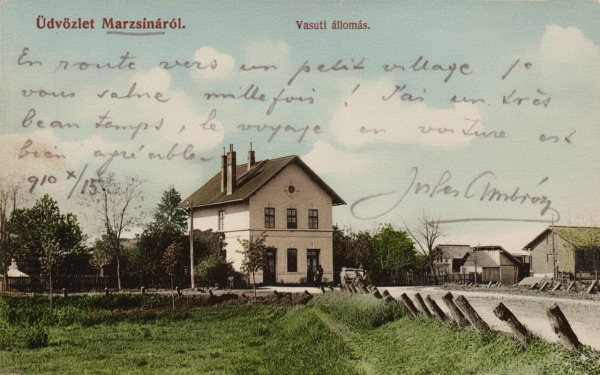 Üdvözlet Marzsináról.
Vasuti állomás.
En route vers un petit village je
vous salue millefois ! J'ai un très
beau temps, le voyage en voiture est
bien agréable.
910 X/15
Jules Ambrózy